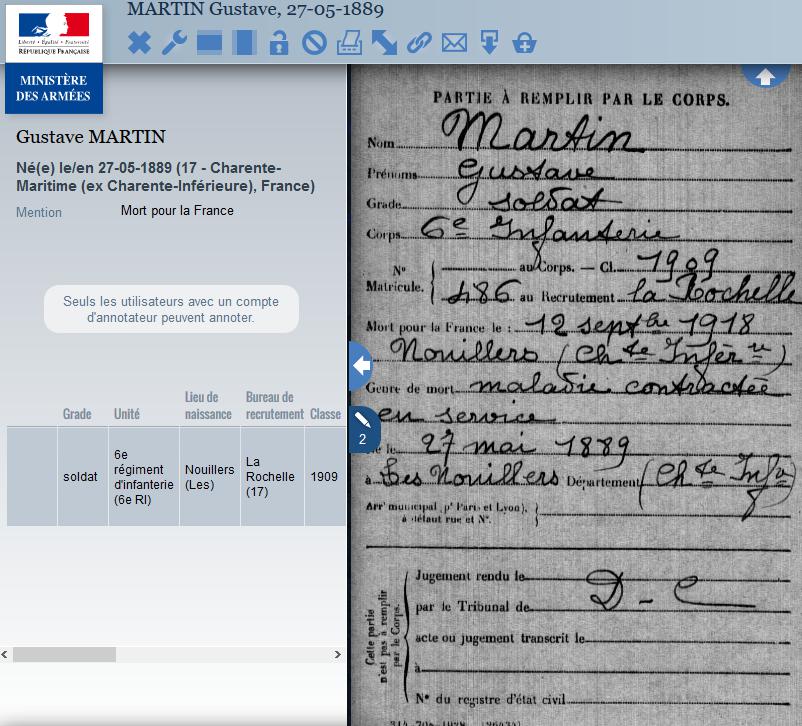 MARTIN Gustave, 27-05-1889
Liberté • Égalité • Fraternité
RÉPUBLIQUE FRANÇAISE
MINISTÈRE
DES ARMÉES
Gustave MARTIN
Né(e) le/en 27-05-1889 (17 - Charente-
Maritime (ex Charente-Inférieure), France)
Mention Mort pour la France
Seuls les utilisateurs avec un compte
d'annotateur peuvent annoter.
Grade Unité Lieu de naissance Bureau de recrutement Classe
soldat 6e régiment d'infanterie (6e RI) Nouillers (Les) La Rochelle (17) 1909
2
PARTIE À REMPLIR PAR LE CORPS.
Nom Martin
Prénoms Gustave
Grade soldat
Corps 6e Infanterie
N° Matricule. { au Corps. — Cl. 1909
486 au Recrutement la Rochelle
Mort pour la France le : 12 septbre 1918
Nouillers (Chte Inférre)
Genre de mort maladie contractée
en service
Né le 27 mai 1889
à Les Nouillers Département (Chte Infre)
Arrt municipal (pr Paris et Lyon),
à défaut rue et N°.
Cette partie
n'est pas à remplir
par le Corps.
Jugement rendu le
par le Tribunal de D - C
acte ou jugement transcrit le
à
N° du registre d'état civil